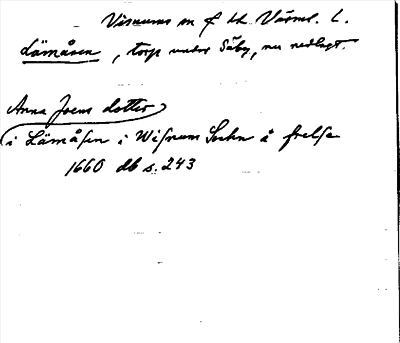 Visnums sn f hd. Värml. l.
Lämåsen, torp under Säby, nu nedlagt.
Anna Joens dotter
i Lämåsen i Wisnum Sochn å frelse
1660 db s. 243